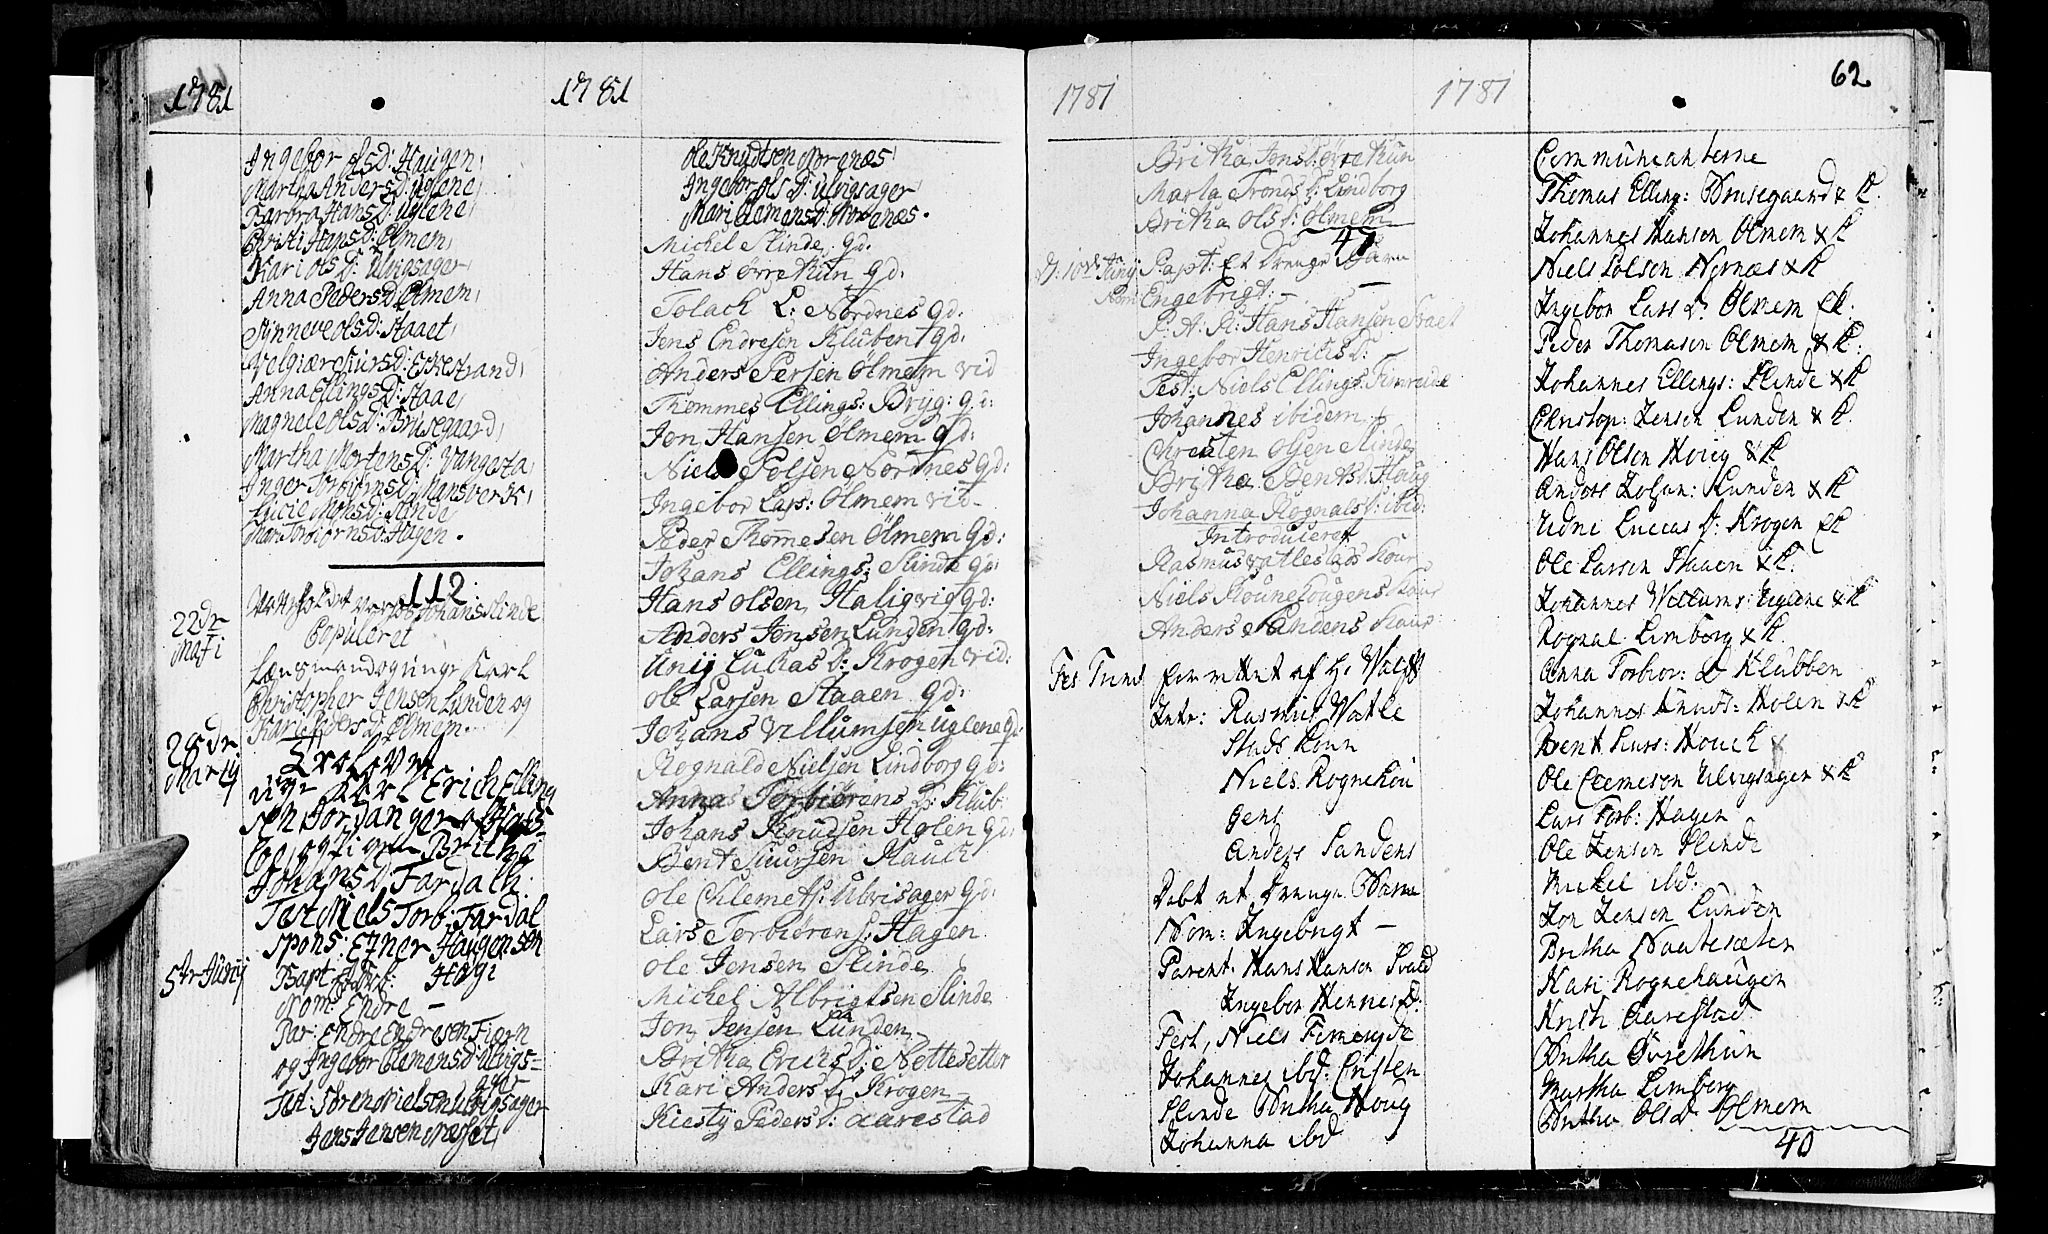 1781
1781
Ingebor olsd: Haugen,
Martha Andersd: Uglene,
Barbra Hansd: Uglene,
Christi Hansd: Ølmem,
Kari ols D: Ulvigsager,
Anna PedersD: Ølmem,
Synneve olsd: Staaet,
Velgiær Siursd: Eskestrand,
Anna EllingsD: Staae,
Magnele olsd: Brusegaard,
Martha MortensD: Vangesta,
Inger TorbiørnsD: Mansverk,
Sicie Monsd: Slinde
Mari Torbiørnsd: Hagen.
112.
Johans Slinde
22dr Maji
Copuleret
Lænsmand og unge Karl
Christopher Jensen Lunden og
Kari Peders D. Ølmem.
28dr Marty
Trolovet
unge Karl Erich Elling
sen Jordanger
og Pigen Britha
JohansD: Fardalh:
Test: Niels Torb: Fardal
spons: Efner Haugensen
5tr Juny
Bapt:
Nom: Endre –
Par: Endre Endresen Fiærn
og Ingebor ClemensD: Ulvigs=
ager
Test: Søren Nielsen Ulvigsager
Jens Jensen Næsset,
Ole Knudtsen Norenæs,
Ingebor ols D: Ulvigsager
Mari ClemensD: Norenæs.
Michel Slinde. gd.
Hans Ørrekun gd:
Tolach L: Nordnes gd:
Jens Endresen Kluben gd:
Anders Persen Ølmem vid
Thommes Ellings: Bryg: gd:
Jon Hansen Ølmem gd:
Niels Polsen Nordnes gd:
Ingebor Lass: Ølmem vid-
Peder Thomesen Ølmem gd:
Johans Ellings: Slinde gd:
Hans Olsen Haligvig gd:
Anders Jensen Lunden gd:
Unij Lukas D: Krogen vid:
Ole Larsen Staaen gd:
Johans Villumsen Uglene gd
Rognald Nielsen Lindborg gd:
Anna Torbiørens D: Klub:
Johans Knudsen Holen gd:
Bent Siursen Hauch
Ole Chlemets: Ulvisager gd:
Lars Torbiøren S: Hagen
Ole Jensen Slinde
Michel Albrigtsen Slinde
Jon Jensen Lunden
Britha Erichs D: Nettesetter
Kari Anders D: Krogen
Kiesty Peders D: Aarestad
1781
1781
62
Britha Jens D: Ørrekun
Marta Tronds D: Lindborg
Britha Ols D: Ølmem
47
D: 10de Juny Bapt: Et Drenge Barn
Nom: Engebrigt: –
P: A: R: Hans Hansen Svaet
Ingebor Henrichs D:
Test: Niels Ellings: Fimreite
Johannes ibidem
Chresten Olsen Slinde
Britha Bents D: Haug
Johanna Rognals D: ibid:
Introduceret
Rasmus Vatlestads Kone
Niels Rounehougens Kone
Anders Sandens Kone
Fes: Trinit forrettet af H: Wulff
Intr: Rasmus Watle
Stads Kone
Niels Rognehou
gens
Anders Sandens
Døbt et Drenge Barn
Nom: Ingebrigt –
Parent: Hans Hansen Svald
Ingebor Hennes D:
Test, Niels Fimreyde
Johannes ibd: Cristen
Slinde Britha Houg
Johanna ibd
Communicanterne
Thomas Elling: Brusegaard & K.
Johannes Hansen Ølmem & K
Niels Polsen Nornæs & K
Ingebor Lars D. Ølmem EK.
Peder Thomasen Ølmem & K.
Johannes Ellings: Slinde & K
Christop: Jensen Lunden & K.
Hans Olsen Hoieg & K
Anders Johan: Lunden & K
Udni Luccas D: Krogen EK
Ole Larsen Staaen & K.
Johannes Willums: Uglene & K
Rognal Limborg & K.
Anna Torbior: D Klubben
Johannes Knuds: Holen & K
Bent Siurs: Houch &
Ole Clemeson Ulvigsagen & K
Lars Torb: Hagen
Ole Jensen Slinde
Mickel ibd.
Jon Jensen Lunden
Britha Naatesæter
Kari Rognehaugen
Kristi Aarestad
Britha Øurethun
Martha Limborg
Britha Olsd Ølmem
40